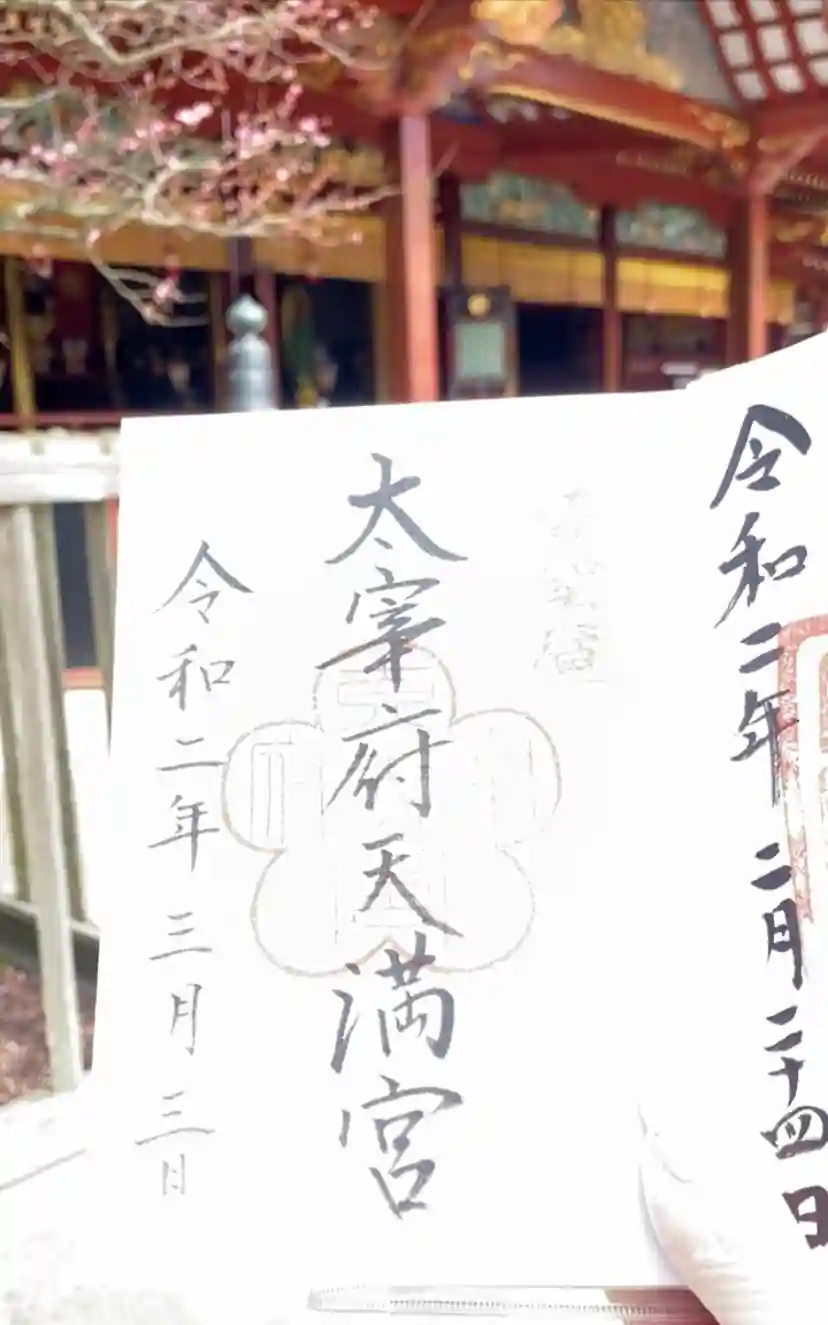 令和二年 二月二十四日
太宰府天満宮
令和二年 三月三日